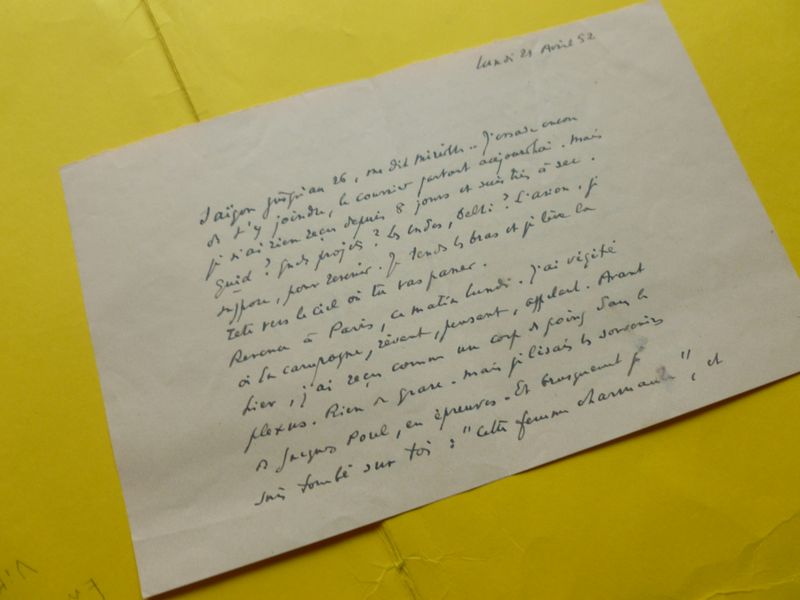 Lundi 21 Avril 52
Saïgon jusqu'au 26, me dit Mireille.. J'essaie encore
de t'y joindre, le courrier partant aujourd'hui. Mais
je n'ai rien reçu depuis 8 jours et suis très à sec.
Quid? Quels projets? Les Indes, Delhi? L'avion, je
suppose, pour revenir. Je tends les bras et je lève la
tête vers le ciel où tu vas passer.
Revenu à Paris, ce matin lundi. J'ai végété
à la campagne, rêvant, pensant, appelant. Avant
hier, j'ai reçu comme un coup de poing dans le
plexus. Rien de grave. Mais je lisais les souvenirs
de Jacques Porel, en épreuves. Et brusquement je
suis tombé sur toi : "cette femme charmante", et